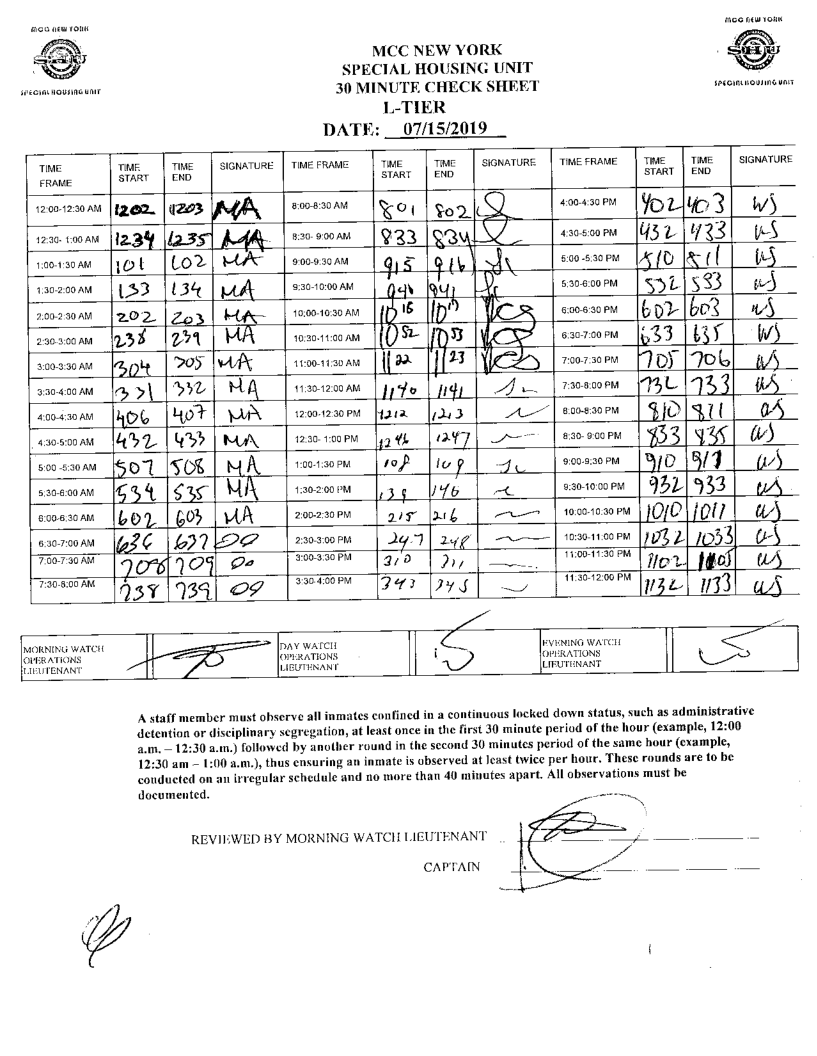 MCC NEW YORK
SPECIAL HOUSING UNIT
MCC NEW YORK
SHU
SPECIAL HOUSING UNIT
MCC NEW YORK
SPECIAL HOUSING UNIT
30 MINUTE CHECK SHEET
L-TIER
DATE: 07/15/2019
TIME FRAME TIME START TIME END SIGNATURE TIME FRAME TIME START TIME END SIGNATURE TIME FRAME TIME START TIME END SIGNATURE
12:00-12:30 AM 1202 1203 MA 8:00-8:30 AM 801 802 4:00-4:30 PM 402 403 WS
12:30- 1:00 AM 1234 1235 MA 8:30- 9:00 AM 833 834 4:30-5:00 PM 432 433 WS
1:00-1:30 AM 101 102 MA 9:00-9:30 AM 915 916 5:00 -5:30 PM 510 511 WS
1:30-2:00 AM 133 134 MA 9:30-10:00 AM 940 941 5:30-6:00 PM 532 533 WS
2:00-2:30 AM 202 203 MA 10:00-10:30 AM 1016 1017 6:00-6:30 PM 602 603 WS
2:30-3:00 AM 238 239 MA 10:30-11:00 AM 1052 1053 6:30-7:00 PM 633 635 WS
3:00-3:30 AM 304 305 MA 11:00-11:30 AM 1122 1123 7:00-7:30 PM 705 706 WS
3:30-4:00 AM 331 332 MA 11:30-12:00 AM 1140 1141 7:30-8:00 PM 732 733 WS
4:00-4:30 AM 406 407 MA 12:00-12:30 PM 1212 1213 8:00-8:30 PM 810 811 WS
4:30-5:00 AM 432 433 MA 12:30- 1:00 PM 1246 1247 8:30- 9:00 PM 833 835 WS
5:00 -5:30 AM 507 508 MA 1:00-1:30 PM 108 109 9:00-9:30 PM 910 911 WS
5:30-6:00 AM 534 535 MA 1:30-2:00 PM 139 140 9:30-10:00 PM 932 933 WS
6:00-6:30 AM 602 603 MA 2:00-2:30 PM 215 216 10:00-10:30 PM 1010 1011 WS
6:30-7:00 AM 636 637 OO 2:30-3:00 PM 247 248 10:30-11:00 PM 1032 1033 WS
7:00-7:30 AM 708 709 OO 3:00-3:30 PM 310 311 11:00-11:30 PM 1102 WS
7:30-8:00 AM 738 739 OO 3:30-4:00 PM 343 345 11:30-12:00 PM 1132 1133 WS
MORNING WATCH OPERATIONS LIEUTENANT DAY WATCH OPERATIONS LIEUTENANT EVENING WATCH OPERATIONS LIEUTENANT
A staff member must observe all inmates confined in a continuous locked down status, such as administrative
detention or disciplinary segregation, at least once in the first 30 minute period of the hour (example, 12:00
a.m. – 12:30 a.m.) followed by another round in the second 30 minutes period of the same hour (example,
12:30 am – 1:00 a.m.), thus ensuring an inmate is observed at least twice per hour. These rounds are to be
conducted on an irregular schedule and no more than 40 minutes apart. All observations must be
documented.
REVIEWED BY MORNING WATCH LIEUTENANT
CAPTAIN